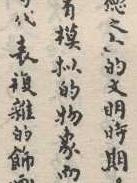 的文明時期
有模拟的物象而
代表複雜的飾